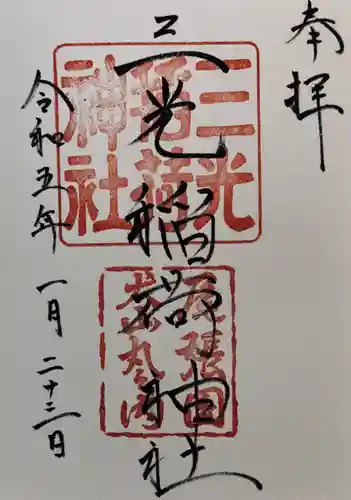 奉拝
三光稲荷神社
令和五年 一月 二十三日
三光
稲荷
神社
尾張国